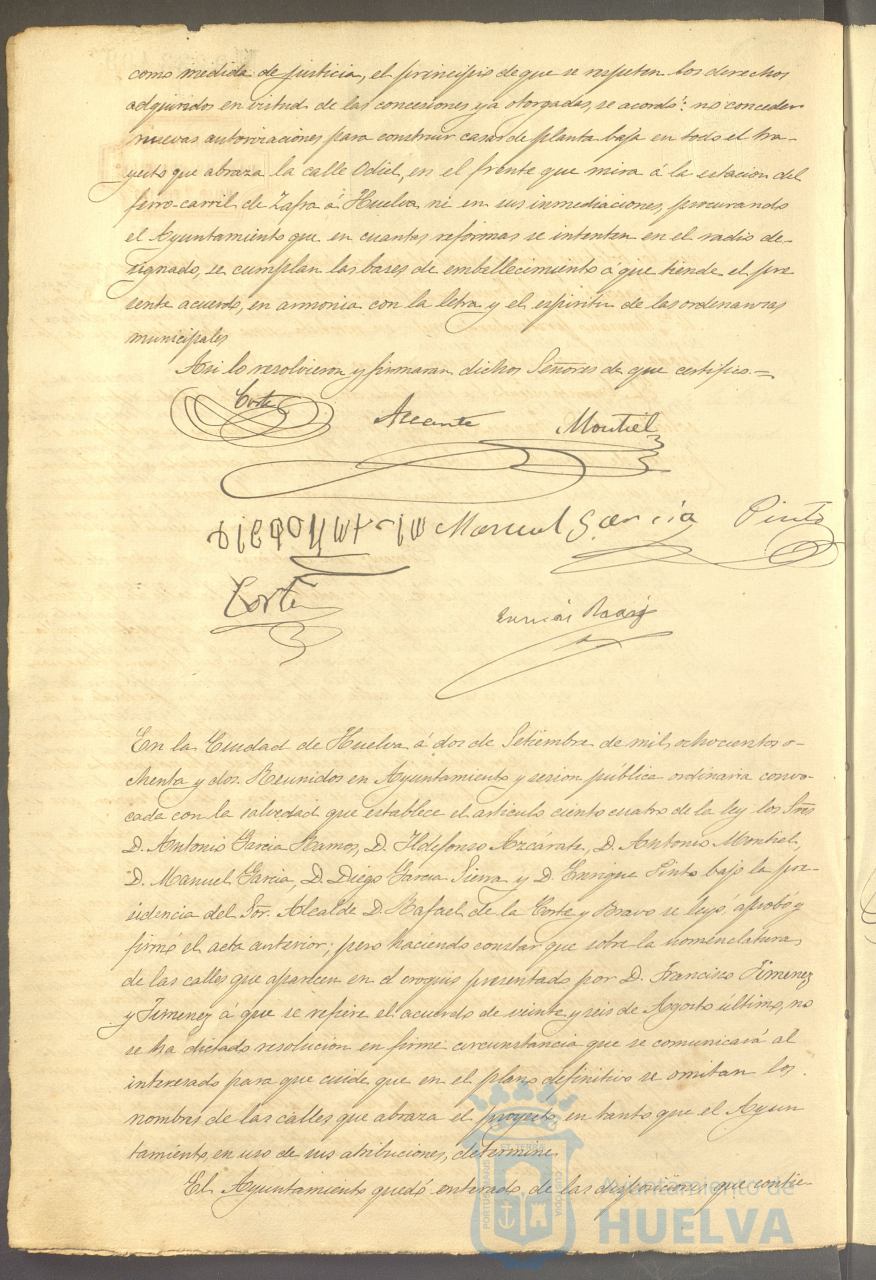 como medida de justicia, el principio de que se respetan los derechos
adquiridos en virtud de las concesiones ya otorgadas, se acordó: no conceder
nuevas autorizaciones para construir casas de planta baja en todo el tra-
yecto que abraza la calle Odiel, en el frente que mira á la estacion del
ferro-carril de Zafra á Huelva ni en sus inmediaciones, procurando
el Ayuntamiento que en cuantas reformas se intenten en el radio de-
signado, se cumplan las bases de embellecimiento á que tiende el pre
sente acuerdo, en armonia con la letra y el espiritu de las ordenanzas
municipales
Asi lo resolvieron y firmaran dichos Señores de que certifico.=
Corte Montiel
Manuel Garcia Pinto
Corte
En la Ciudad de Huelva á dos de Setiembre de mil ochocientos o-
chenta y dos. Reunidos en Ayuntamiento y sesion pública ordinaria convo-
cada con la salvedad que establece el articulo ciento cuatro de la ley los Sres
D. Antonio Garcia Ramos, D. Ildefonso Azcárate, D. Antonio Montiel,
D. Manuel Garcia, D. Diego Garcia Sierra y D. Enrique Pinto bajo la pre-
sidencia del Sor. Alcalde D. Rafael de la Corte y Bravo se leyó, aprobó y
firmó el acta anterior; pero haciendo constar que sobre la nomenclatura
de las calles que aparecen en el croquis presentado por D. Francisco Jimenez
y Jimenez á que se refiere el acuerdo de veinte y seis de Agosto último, no
se ha dictado resolucion en firme circunstancia que se comunicará al
interesado para que cuide que en el plano definitivo se omitan los
nombres de las calles que abraza el proyecto, en tanto que el Ayun
tamiento, en uso de sus atribuciones, determine.
El Ayuntamiento quedó enterado de las disposiciones que contie-
Ayuntamiento de
HUELVA